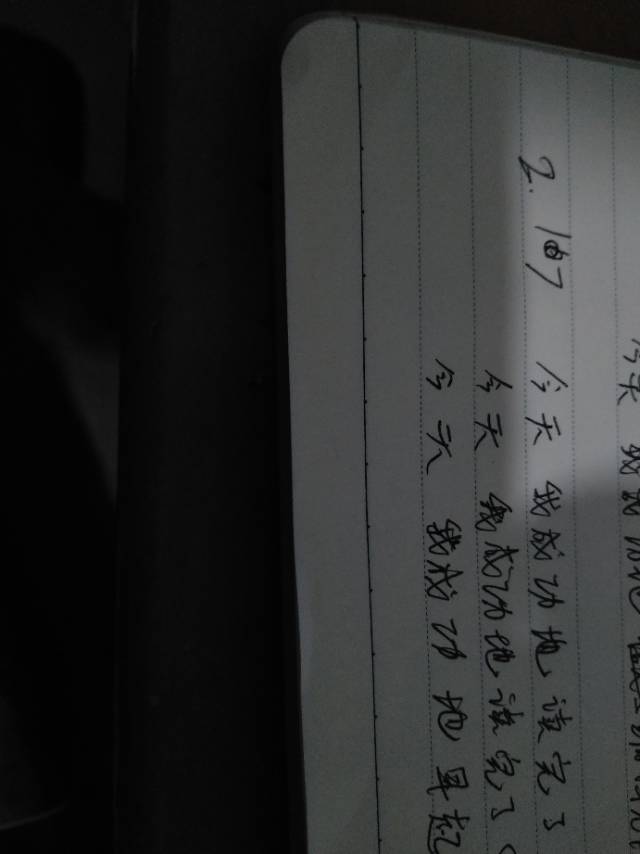 今天 我成功地
2. 今天 我成功地 读完了
今天 我成功地读完了
今天 我成功地早起